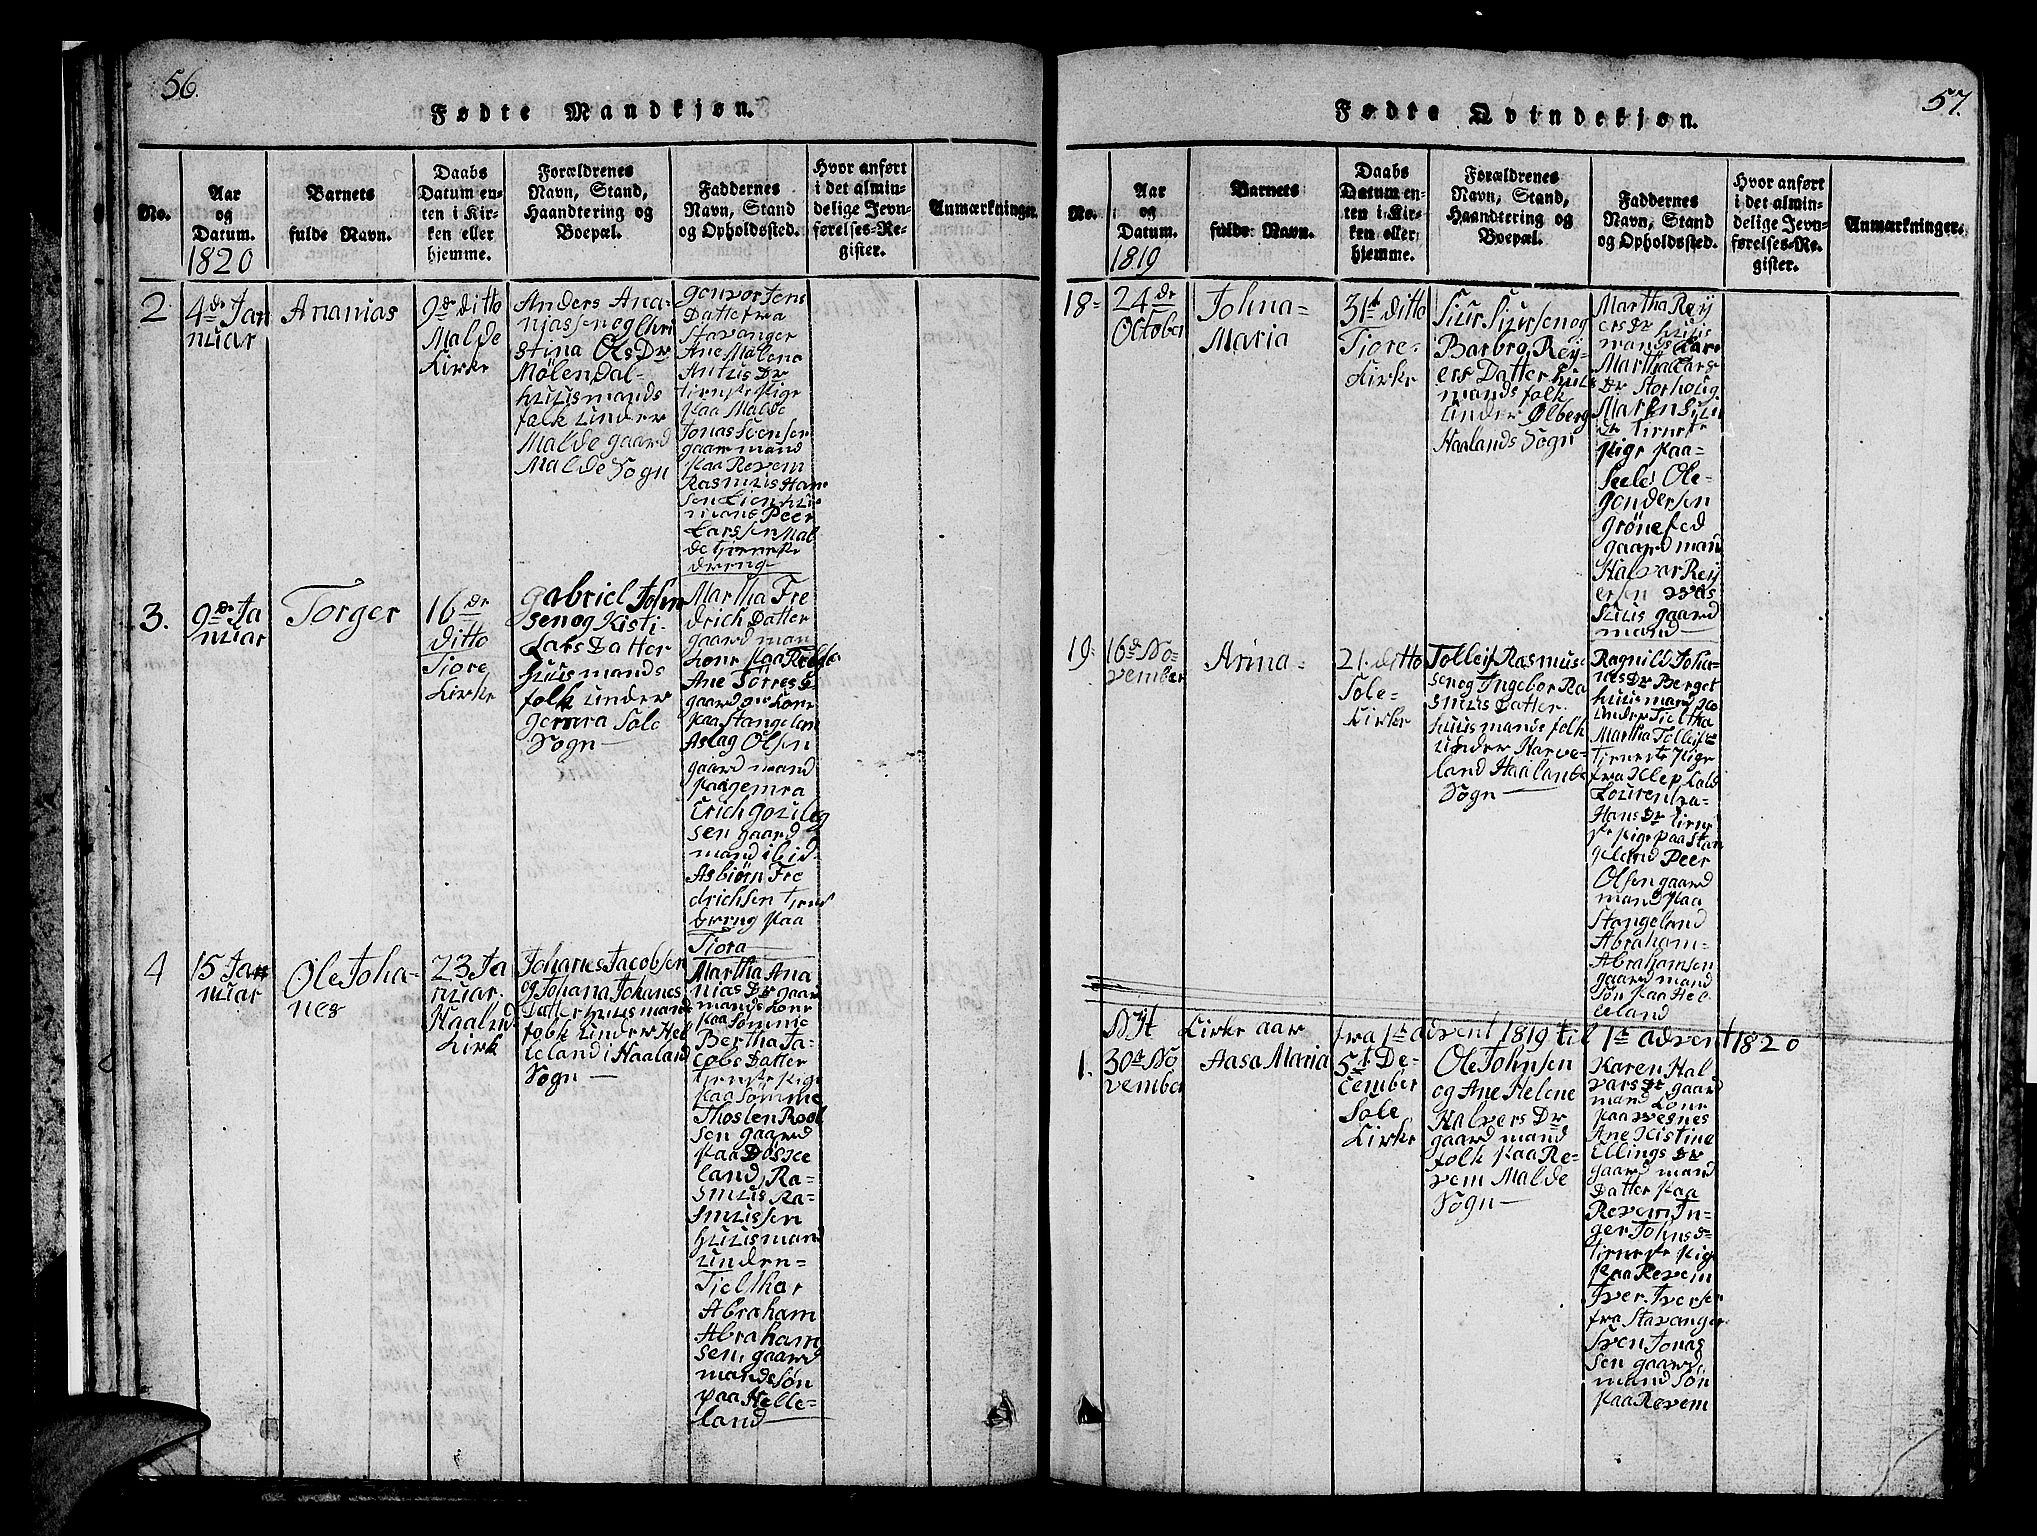 56.
Fødte Mandkjøn.
No.
Aar
og
Datum.
1820
Barnets
fulde Navn.
Daabs
Datum en-
ten i Kir-
ken eller
hjemme.
Forældrenes
Navn, Stand,
Haandtering og
Boepæl.
Faddernes
Navn, Stand
og Opholdssted.
Hvor anført
i det almin-
delige Jevn-
førelses-Re-
gister.
Anmærkninger.
2
4de Jan
nuar
Ananias
9de ditto
Malde
Kirke
Anders Ana-
niassen og Chri
stina Ols Dr
Mølendal-
huusmands
folk under
Malde gaard
Malde Sogn
Jens
Datter fra
Stavanger
Ane Malena
Dr
tieneste Pige
paa Malde
Jonas Svensen
gaardmand
paa Revem
Rasmus Han
sen
Peer
Larssen Mal
de tieneste
dreng
3.
9de Ja
nuar
Torger
16de
ditto
Tiore
Kirke
Gabriel John
sen og Kisti
Lars Datter
huusmands
folk under
gemra Sole
Sogn
Martha Fre
drich Datter
gaard man
kone paa
Ane Torres D
gaard m kone
paa Stangelan
Aslag Olsen
gaard mand
paa gemra
Erich
sen gaard
mand ibid.
Asbiørn Fre
drichsen tiene
dreng paa
Tiora
4
15 Jan
nuar
Ole Joha-
nes
23 Ja
nuar.
Haaland
Kirk
Johanes Jacobsen
og Johana Johanes
Datter huusmand
folk under Hel
leland i Haaland
Sogn
Martha Ana
nias Dr gaar
mands kone
paa Sømme
Bertha Ja-
cobs Datter
tieneste Pige
paa Sømme
Roal
sen gaard
paa
land, Ra-
smus Ra-
smussen
huusmand
under-
Tielthar
Abraham
Abraham
sen, gaard
mande søn
paa Helle-
land
57.
Fødte Qvindekjøn.
No.
Aar
og
Datum.
1819
Barnets
fulde Navn.
Daabs
Datum en-
ten i Kir-
ken eller
hjemme.
Forældrenes
Navn, Stand,
Haandtering og
Boepæl.
Faddernes
Navn, Stand
og Opholdssted.
Hvor anført
i det almin-
delige Jevn-
førelses-Re-
gister.
Anmærkninger.
18-
24de
October
Johna-
Maria
31t ditto
Tiore-
Kirke
Siur Siursen og
Barbro Rey-
ers Datter huus
mands folk
under Ølberg
Haalands Sogn
Martha Rey
ers Dr huus
mands
Martha Lars
Dr Storhoug
Maren
Dr tieneste
Pige paa-
Seele Ole-
gondersen
grönefed
gaard mand
Halvar Rey
ersen
huus gaard
mand
19-
16de No-
vember
Arina-
21. ditto
Sole-
Kirke
Tolleif Rasmus-
sen og Ingebor Ra
smus Datter.
huusmands folk
under Harve-
land Haalands
Sogn
Ragnild Joha-
nes Dr Berget
huusmand ko
under Tieltha
Martha Tolleifs
tieneste Pige
fra Klep Kald
Lourentza-
Hans Dr tiene
ste Pige paa Stan
geland Peer
Olsen gaard
mand paa
Stangeland
Abraham-
Abrahamsen
gaard mand
Søn paa Hel
leland
Nyt Kirke aar fra 1te advent 1819 til 1te advent 1820
1.
30te No
vember
Aasa Maria
5te De-
cember
Sole
Kirke
Ole Johnsen
og Ane Helene
Halvers Dr
gaard mand
folk paa Re-
vem Malde
Sogn
Karen Hal
vars Dr gaard
mand kone
paa
Ane Kistine
Ellings Dr
gaard mand
Datter paa
Revem In-
ger Johns D
tieneste Pige
paa Revem
Iver Iversen
fra Stavanger
Sven Jonas
sen gaard
mand Søn
paa Revem